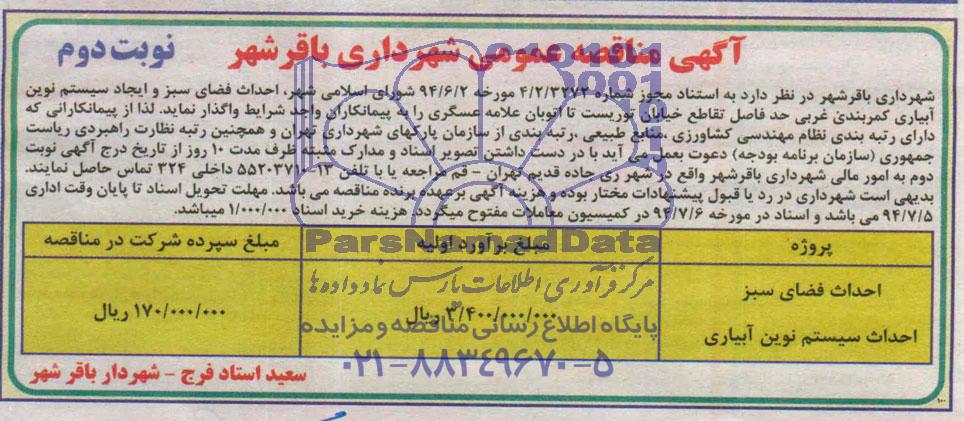 آگهی مناقصه عمومی شهرداری باقرشهر
نوبت دوم
شهرداری باقرشهر در نظر دارد به استناد مجوز شماره ۴/۲/۳۲۷۲ مورخه ۹۴/۶/۲ شورای اسلامی شهر، احداث فضای سبز و ایجاد سیستم نوین
آبیاری کمربندی غربی حد فاصل تقاطع خیابان توریست تا اتوبان علامه عسگری را به پیمانکاران واجد شرایط واگذار نماید. لذا از پیمانکارانی که
دارای رتبه بندی نظام مهندسی کشاورزی ،منابع طبیعی ،رتبه بندی از سازمان پارکهای شهرداری تهران و همچنین رتبه نظارت راهبردی ریاست
جمهوری (سازمان برنامه بودجه) دعوت بعمل می آید با در دست داشتن تصویر اسناد و مدارک مثبته ظرف مدت ۱۰ روز از تاریخ درج آگهی نوبت
دوم به امور مالی شهرداری باقرشهر واقع در شهر ری جاده قدیم تهران – قم مراجعه یا با تلفن ۱۳-۵۵۲۰۳۷۱۰ داخلی ۳۲۴ تماس حاصل نمایند.
بدیهی است شهرداری در رد یا قبول پیشنهادات مختار بوده و هزینه آگهی بر عهده برنده مناقصه می باشد. مهلت تحویل اسناد تا پایان وقت اداری
۹۴/۷/۵ می باشد و اسناد در مورخه ۹۴/۷/۶ در کمیسیون معاملات مفتوح میگردد. هزینه خرید اسناد ۱/۰۰۰/۰۰۰ میباشد.
پروژه
مبلغ برآورد اولیه
مبلغ سپرده شرکت در مناقصه
احداث فضای سبز
احداث سیستم نوین آبیاری
۳/۴۰۰/۰۰۰/۰۰۰ ریال
۱۷۰/۰۰۰/۰۰۰ ریال
سعید استاد فرج – شهردار باقر شهر
ParsNamadData
مرکز فرآوری اطلاعات پارس نماد داده ها
پایگاه اطلاع رسانی مناقصه و مزایده
۰۲۱-۸۸۳۴۹۶۷۰-۵